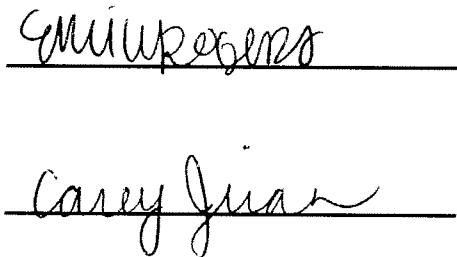 Emily Rogers
Carey Jivan